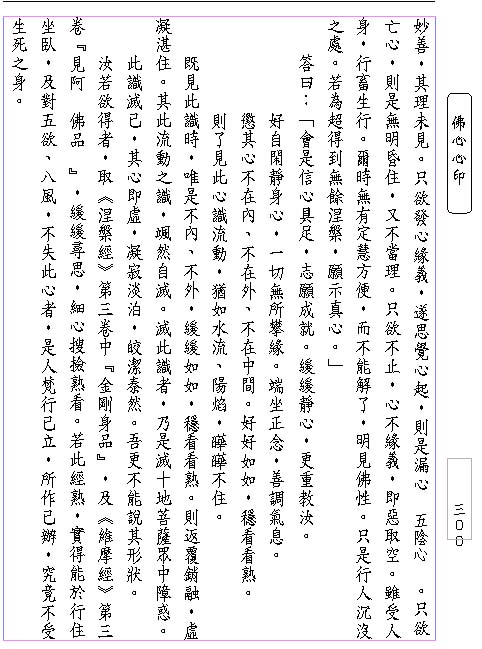 佛心心印
三００
妙善，其理未見。只欲發心緣義，遂思覺心起，則是漏心　五陰心　。只欲
亡心，則是無明昏住，又不當理。只欲不止，心不緣義，即惡取空。雖受人
身，行畜生行。爾時無有定慧方便，而不能解了，明見佛性。只是行人沉沒
之處。若為超得到無餘涅槃，願示真心。」
答曰：「會是信心具足，志願成就。緩緩靜心，更重教汝。
好自閑靜身心，一切無所攀緣。端坐正念，善調氣息。
懲其心不在內、不在外、不在中間。好好如如，穩看看熟。
則了見此心識流動，猶如水流、陽焰，曄曄不住。
既見此識時，唯是不內、不外，緩緩如如，穩看看熟。則返覆銷融，虛
凝湛住。其此流動之識，颯然自滅。滅此識者，乃是滅十地菩薩眾中障惑。
此識滅已，其心即虛，凝寂淡泊，皎潔泰然。吾更不能說其形狀。
汝若欲得者，取《涅槃經》第三卷中『金剛身品』，及《維摩經》第三
卷『見阿　佛品　』，緩緩尋思，細心搜撿熟看。若此經熟，實得能於行住
坐臥，及對五欲、八風，不失此心者，是人梵行已立，所作已辦，究竟不受
生死之身。